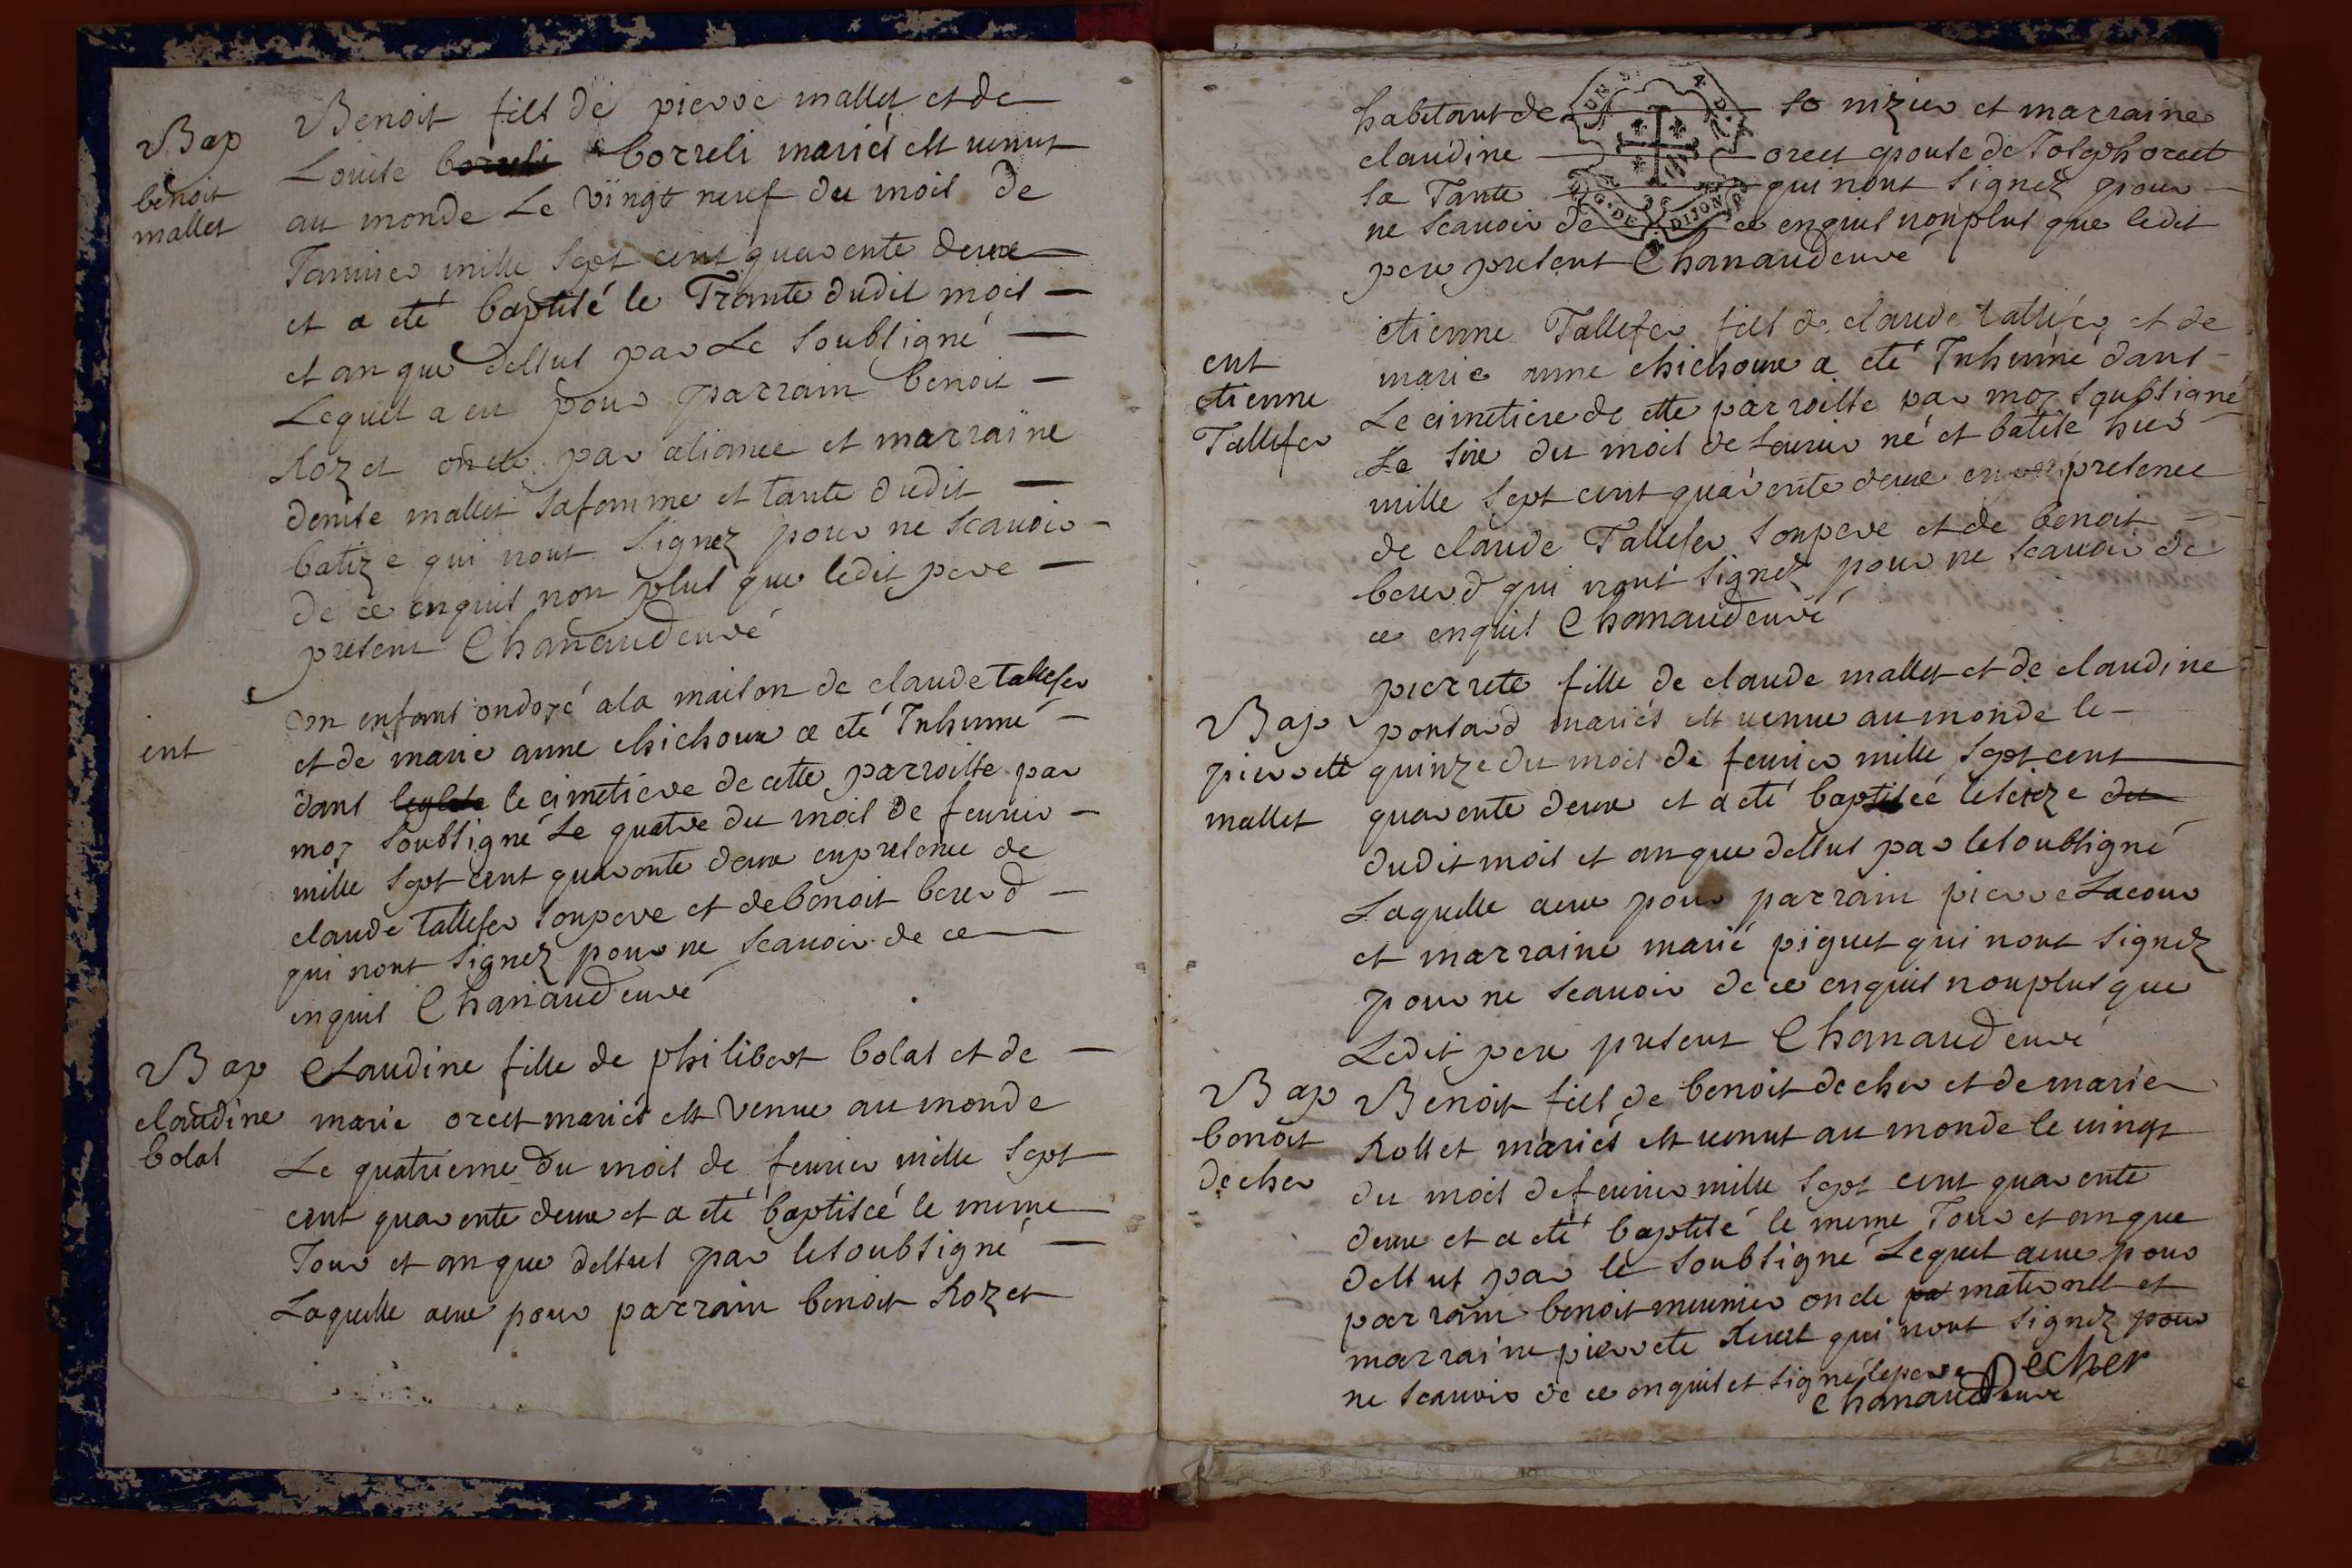 Bap
benoit
mallet
Benoit fils de pierre mallet et de
Louise borreli mariés est venut
au monde Le vingt neuf du mois de
Janvier mille sept cent quarente deux
et a eté baptisé le Trante dudit mois
et an que dessus par Le soubsigné
Lequel a eu pour parrain benoit
Rozet oncle par aliance et marraine
denise mallet sa famme et tante dudit
batize qui nont signez pour ne scauoir
de ce enquis non plus que ledit pere
present Chanaudeuvé
ent
un enfant ondoyé a la maison de claude tallefer
et de marie anne chichoux a eté Inhumé
dans le cimetiere de cette parroisse par
moy soubsigné Le quatre du mois de feurier
mille sept cent quarente deux en presence de
claude tallefer son pere et de benoit bererd
qui nont signez pour ne scauoir de ce
enquis Chanaudeuvé
Bap
claudine
bolas
Claudine fille de philibert bolas et de
marie orcet mariés est venue au monde
Le quatrieme du mois de feurier mille sept
cent quarente deux et a eté baptiseé le meme
Jour et an que dessus par le soubsigné
Laquelle a eue pour parrain benoit Rozet
habitant de st nizier et marraine
claudine orcet epouse de Joseph orcet
sa Tante qui nont signez pour
ne scauoir de ce enquis non plus que ledit
pere present Chanaudeuvé
ent
etienne
Tallefer
etienne Tallefer fils de claude tallefer et de
marie anne chichoux a eté Inhumé dans
Le cimetiere de ette parroisse par moy soubsigné
Le sixe du mois de feurier né et batisé hier
mille sept cent quarente deux en presence
de claude Tallefer son pere et de benoit
bererd qui nont signez pour ne scauoir de
ce enquis Chanaudeuvé
Bap
pierrette
mallet
pierrete fille de claude mallet et de claudine
ponsard mariés est venue au monde le
quinze du mois de feurier mille sept cent
quarente deux et a eté baptiseé le seize du
dudit mois et an que dessus par le soubsigné
Laquelle a eue pour parrain pierre Lacour
et marraine marie piguet qui nont signez
pour ne scauoir de ce enquis non plus que
Ledit pere present Chanaudeuvé
Bap
benoit
decher
Benoit fils de benoit decher et de marie
Rollet mariés est venut au monde le vingt
du mois de feurier mille sept cent quarente
deux et a eté baptisé le meme Jour et an que
dessus par le soubsigné Lequel a eue pour
parrain benoit meunier oncle pa maternel et
marraine pierrete qui nont signez pour
ne scauoir de ce enquis et signé le pere Decher
Chanaudeuve